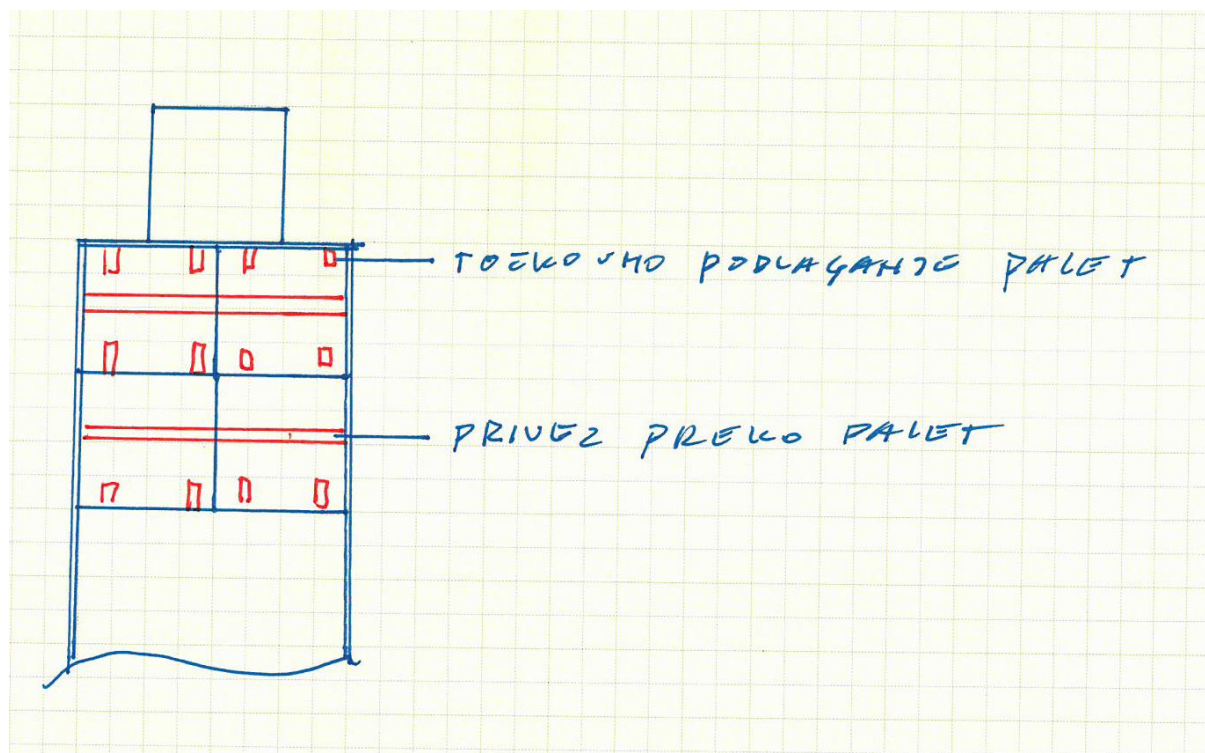 TOČKOVNO PODLAGANJE PALET
PRIVEZ PREKO PALET